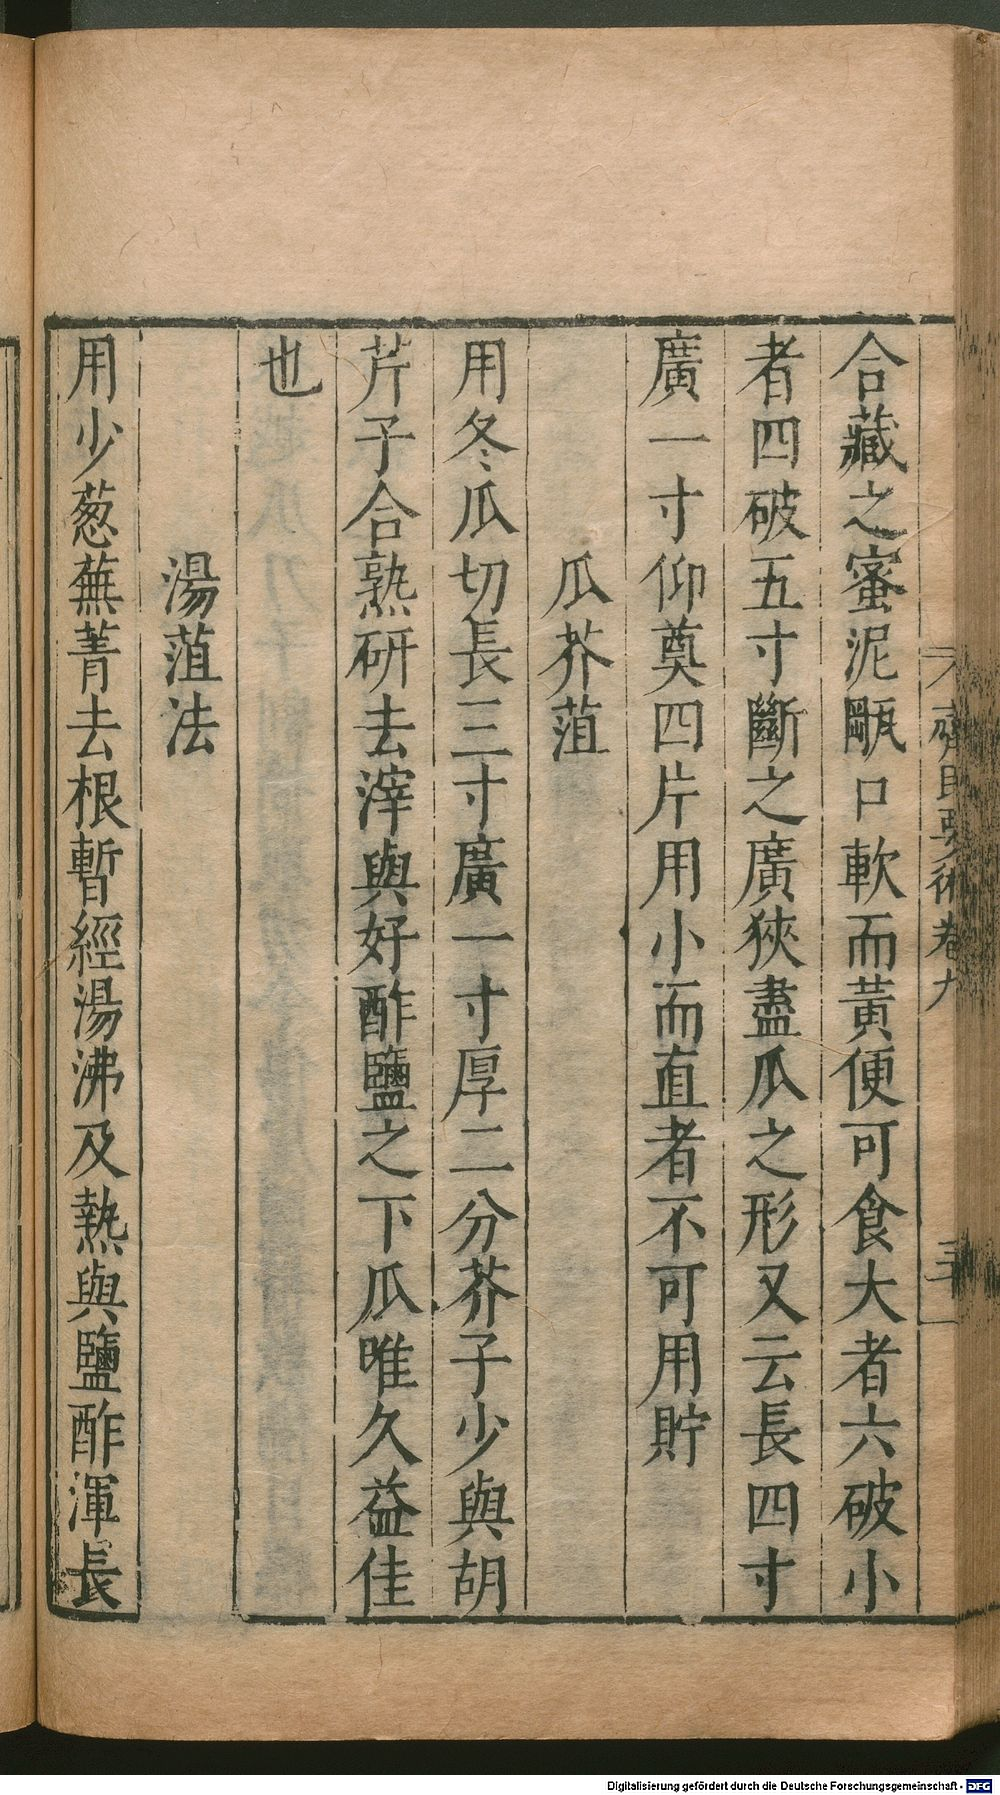 齊民要術卷九
合藏之蜜泥甌口軟而黃便可食大者六破小
者四破五寸斷之廣狹盡瓜之形又云長四寸
廣一寸仰奠四片用小而直者不可用貯
瓜芥菹
用冬瓜切長三寸廣一寸厚二分芥子少與胡
芹子合熟研去滓與好酢鹽之下瓜唯久益佳
也
湯菹法
用少葱蕪菁去根暫經湯沸及熱與鹽酢渾長
Digitalisierung gefördert durch die Deutsche Forschungsgemeinschaft - DFG